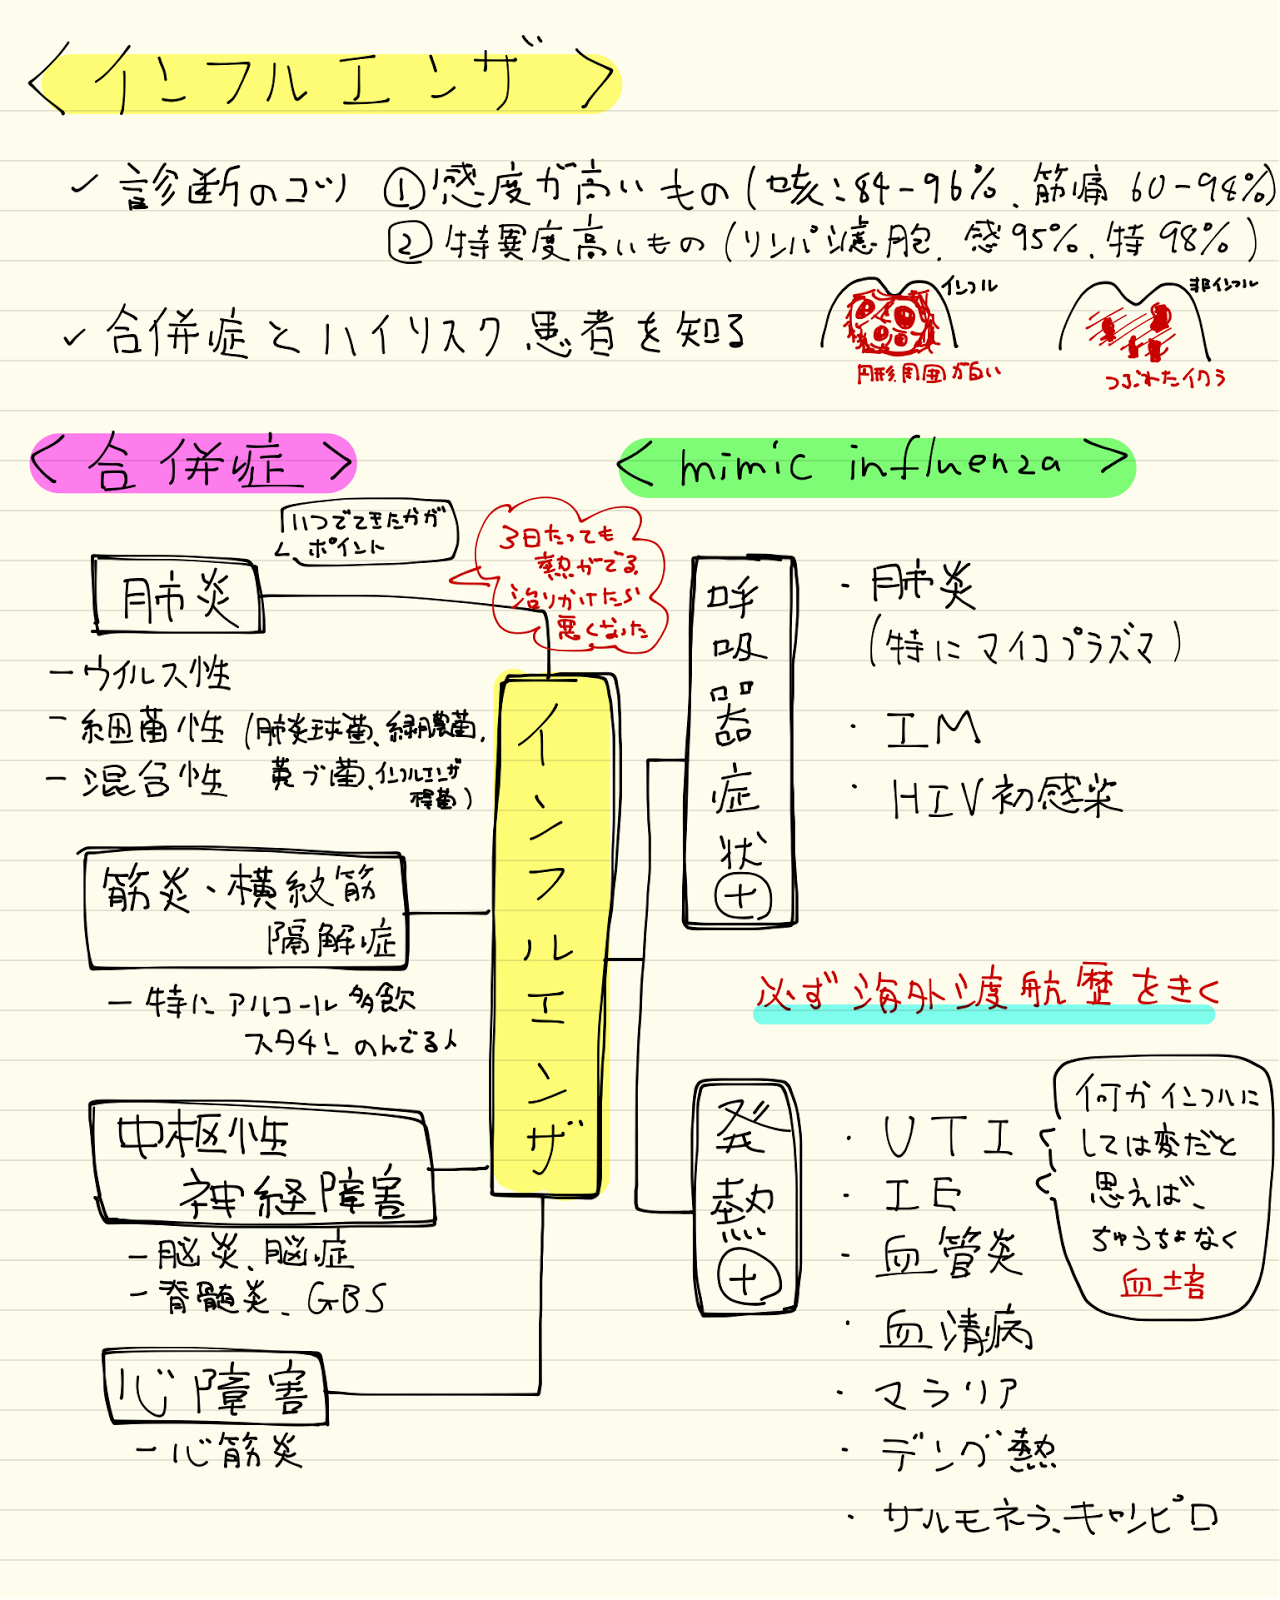 <インフルエンザ>
✓ 診断のコツ ①感度が高いもの(咳:84-96%、筋痛 60-94%)
②特異度高いもの(リンパ濾胞、感95%、特98%)
インフル
円形周囲が白い
非インフル
つぶれたイクラ
✓ 合併症とハイリスク患者を知る
<合併症>
いつでてきたかが
ポイント
3日たっても
熱がでる
治りかけたら
悪くなった
肺炎
- ウイルス性
- 細菌性(肺炎球菌、緑膿菌、
- 混合性 黄ブ菌、インフルエンザ
桿菌)
筋炎・横紋筋
融解症
- 特にアルコール多飲
スタチンのんでる人
中枢性
神経障害
- 脳炎、脳症
- 脊髄炎、GBS
心障害
- 心筋炎
インフルエンザ
<mimic influenza>
呼吸器症状⊕
・肺炎
(特にマイコプラズマ)
・IM
・HIV初感染
必ず海外渡航歴をきく
発熱⊕
・UTI
・IE
・血管炎
・血清病
・マラリア
・デング熱
・サルモネラ、キャンピロ
何かインフルに
しては変だと
思えば、
ちゅうちょなく
血培